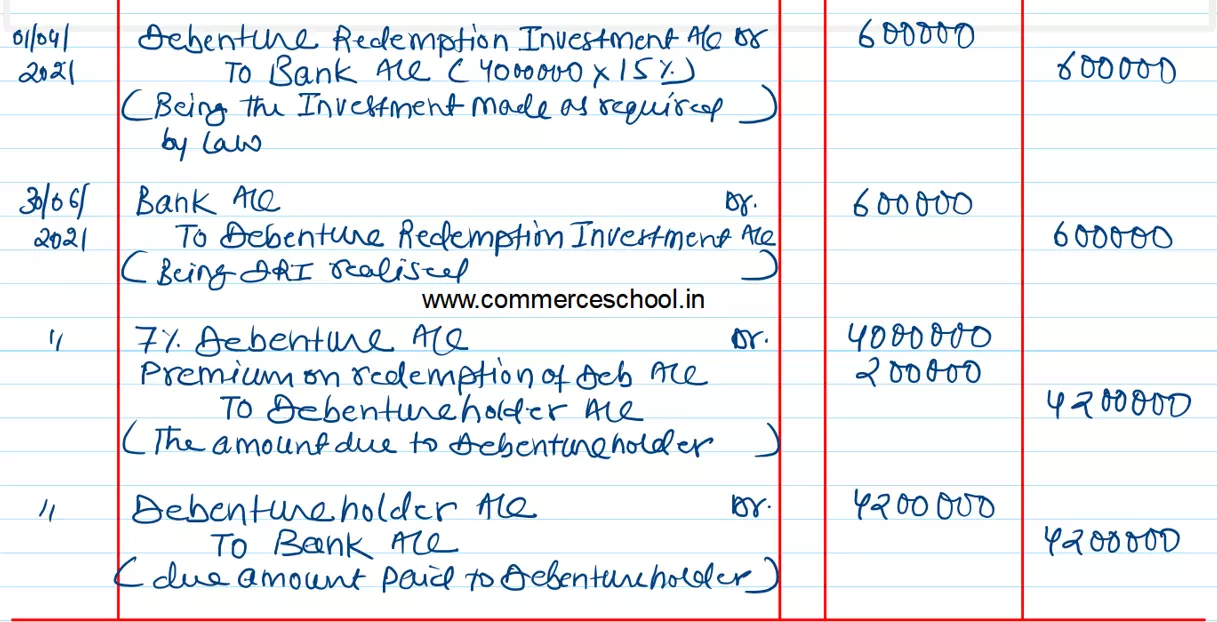 01/04/ Debenture Redemption Investment A/c Dr 600000
2021 To Bank A/c (4000000 x 15%) 600000
(Being the Investment made as required)
by Law
30/06/ Bank A/c Dr. 600000
2021 To Debenture Redemption Investment A/c 600000
(Being DRI realised)
www.commerceschool.in
" 7% Debenture A/c Dr. 4000000
Premium on redemption of Deb A/c 200000
To Debentureholder A/c 4200000
(The amount due to Debentureholder)
" Debentureholder A/c Dr. 4200000
To Bank A/c 4200000
(due amount paid to Debentureholder)